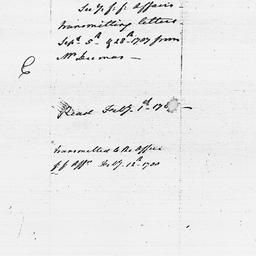 Secy. f. f. Affairs
transmitting letters
Sept. 5th & 28th 1787 from
Mr Dumas —
Read Feby. 1st 178
transmitted to the Office
f f Affrs Feby. 13th 1788